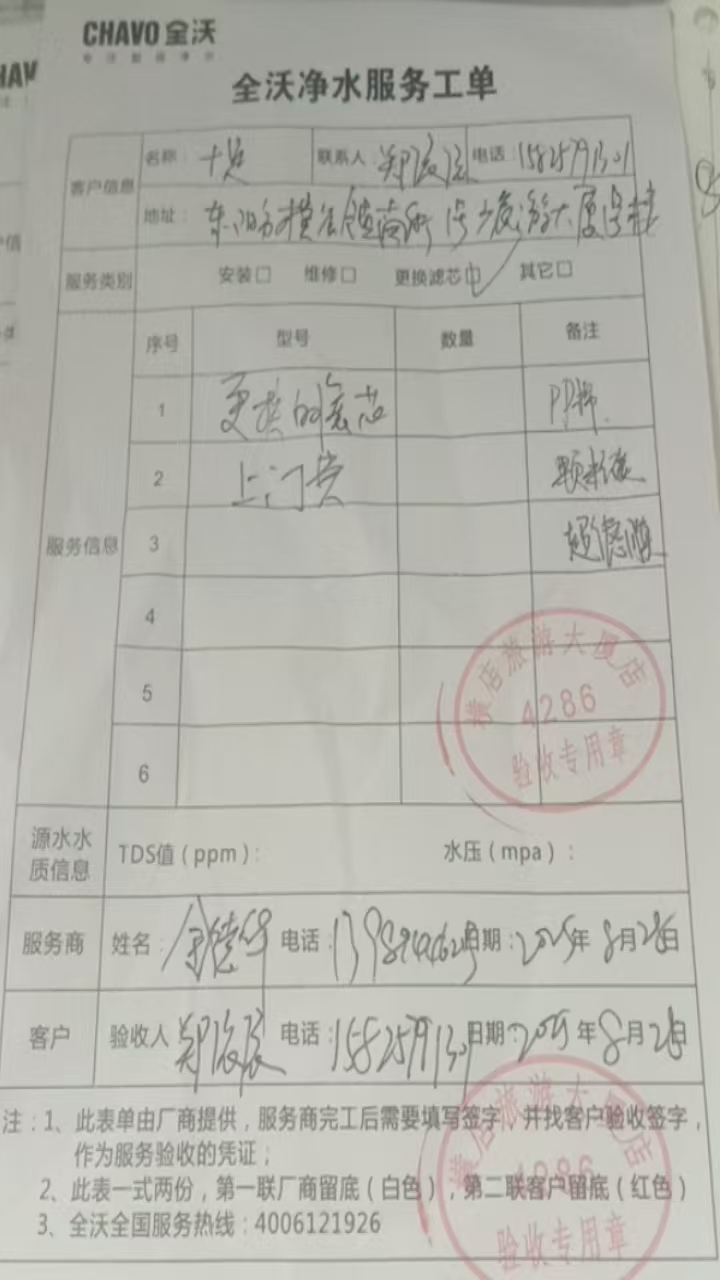 CHAVO 全沃
全沃净水服务工单
客户信息
名称: 联系人: 郑 电话: 15825791301
地址: 东阳市横店镇 号 大厦
服务类别 安装□ 维修□ 更换滤芯□✓ 其它□
服务信息
序号 型号 数量 备注
1 更换的滤芯 PP棉
2 上门费 颗粒碳
3 超滤
4
5
6
横店旅游大厦店
4286
验收专用章
源水水质信息 TDS值(ppm): 水压(mpa):
服务商 姓名: 金德华 电话: 日期: 2025年8月26日
客户 验收人 郑 电话: 15825791301 日期: 2025年8月26日
注:1、此表单由厂商提供,服务商完工后需要填写签字,并找客户验收签字,
作为服务验收的凭证;
2、此表一式两份,第一联厂商留底(白色),第二联客户留底(红色)
3、全沃全国服务热线:4006121926
横店旅游大厦店
4286
验收专用章